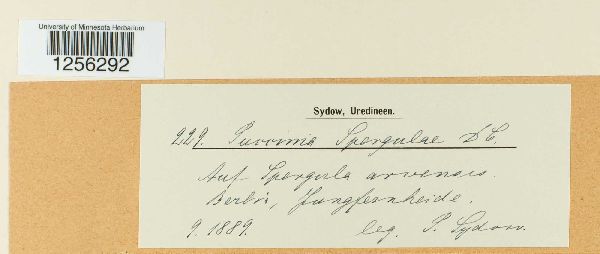 University of Minnesota Herbarium
1256292
Sydow, Uredineen.
229. Puccinia Spergulae DC.
Auf Spergula arvensis.
Berlin, Jungfernheide.
9. 1889. leg. P. Sydow.